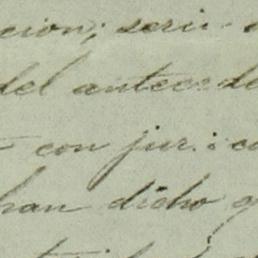 cion; seri
del antecede
con jur.i co
han dicho q